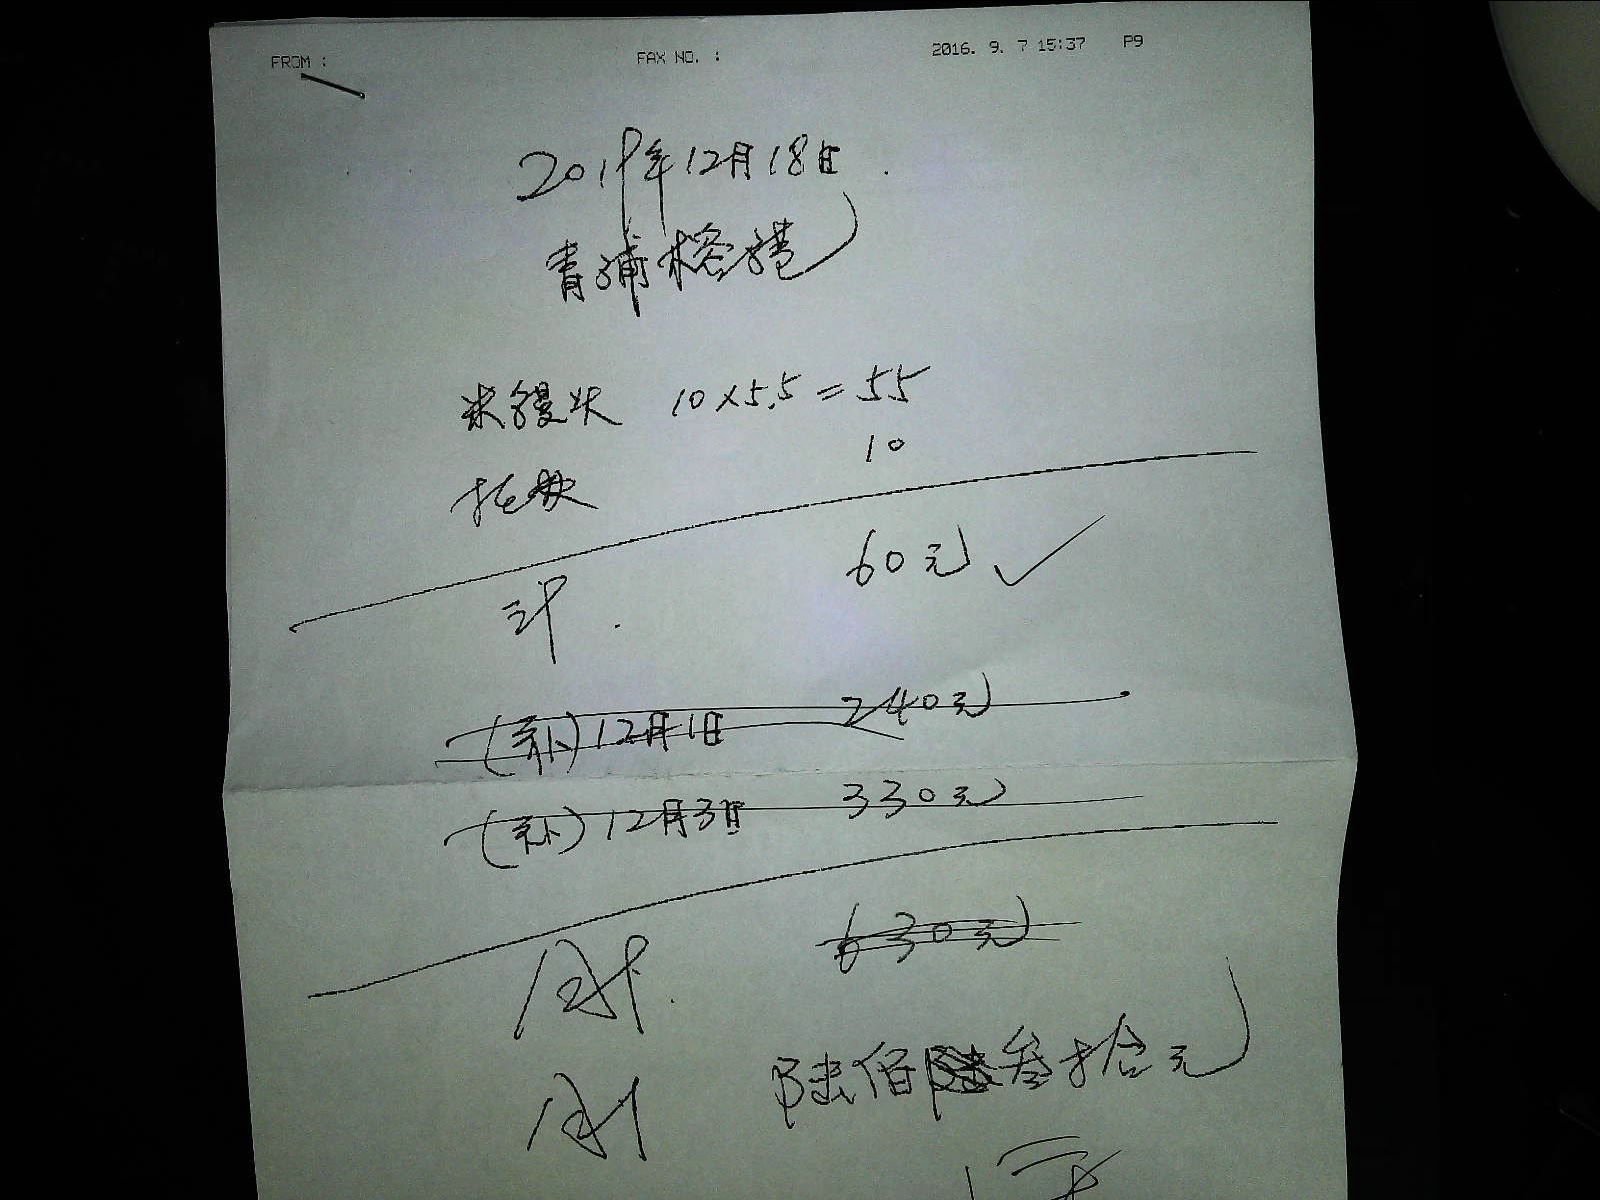 FROM : FAX NO. : 2016. 9. 7 15:37 P9
2019年12月18日
青浦
米馒头 10×5.5=55
10
计 60元 ✓
(补)12月1日 240元
(补)12月3日 330元
合计 630元
合计 陆佰叁拾元